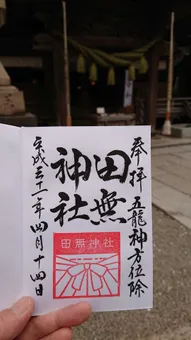 奉拝 五龍神方位除
田無
神社
平成三十一年四月十四日
田無神社